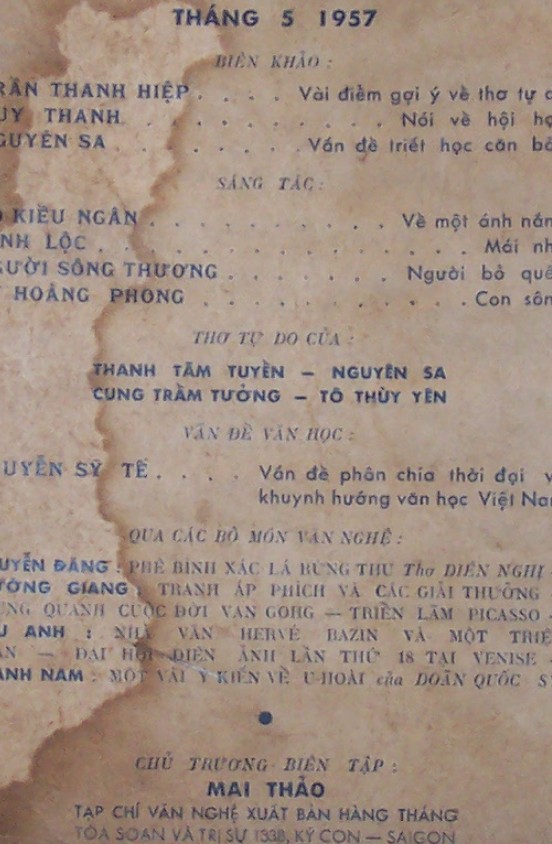 THÁNG 5 1957
BIÊN KHẢO :
RẦN THANH HIỆP . . . . Vài điểm gợi ý về thơ tự d
UY THANH . . . . . . . . . . Nói về hội họ
GUYÊN SA . . . . . . . . Vấn đề triết học căn bả
SÁNG TÁC :
KIỀU NGÂN . . . . . . . . . . Về một ánh nắn
NH LỘC . . . . . . . . . . . . . . Mái nh
GƯỜI SÔNG THƯƠNG . . . . . . . Người bỏ quê
HOÀNG PHONG . . . . . . . . . . Con sôn
THƠ TỰ DO CỦA :
THANH TÂM TUYỀN — NGUYÊN SA
CUNG TRẦM TƯỞNG — TÔ THÙY YÊN
VẤN ĐỀ VĂN HỌC :
UYỄN SỸ TẾ . . . . Vấn đề phân chia thời đại v
khuynh hướng văn học Việt Nam
QUA CÁC BỘ MÔN VĂN NGHỆ :
UYỄN ĐĂNG : PHÊ BÌNH XÁC LÁ RỪNG THU Thơ DIÊN NGHỊ —
ƯỜNG GIANG : TRANH ÁP PHÍCH VÀ CÁC GIẢI THƯỞNG
UNG QUANH CUỘC ĐỜI VAN GOHG — TRIỂN LÃM PICASSO —
U ANH : NHÀ VĂN HERVÉ BAZIN VÀ MỘT TRIỆ
ÂN — ĐẠI HỘI ĐIỆN ẢNH LẦN THỨ 18 TẠI VENISE —
ANH NAM : MỘT VÀI Ý KIẾN VỀ U-HOÀI của DOÃN QUỐC S
CHỦ TRƯƠNG BIÊN TẬP :
MAI THẢO
TẠP CHÍ VĂN NGHỆ XUẤT BẢN HÀNG THÁNG
TÒA SOẠN VÀ TRỊ SỰ 153B, KÝ CON — SAIGON